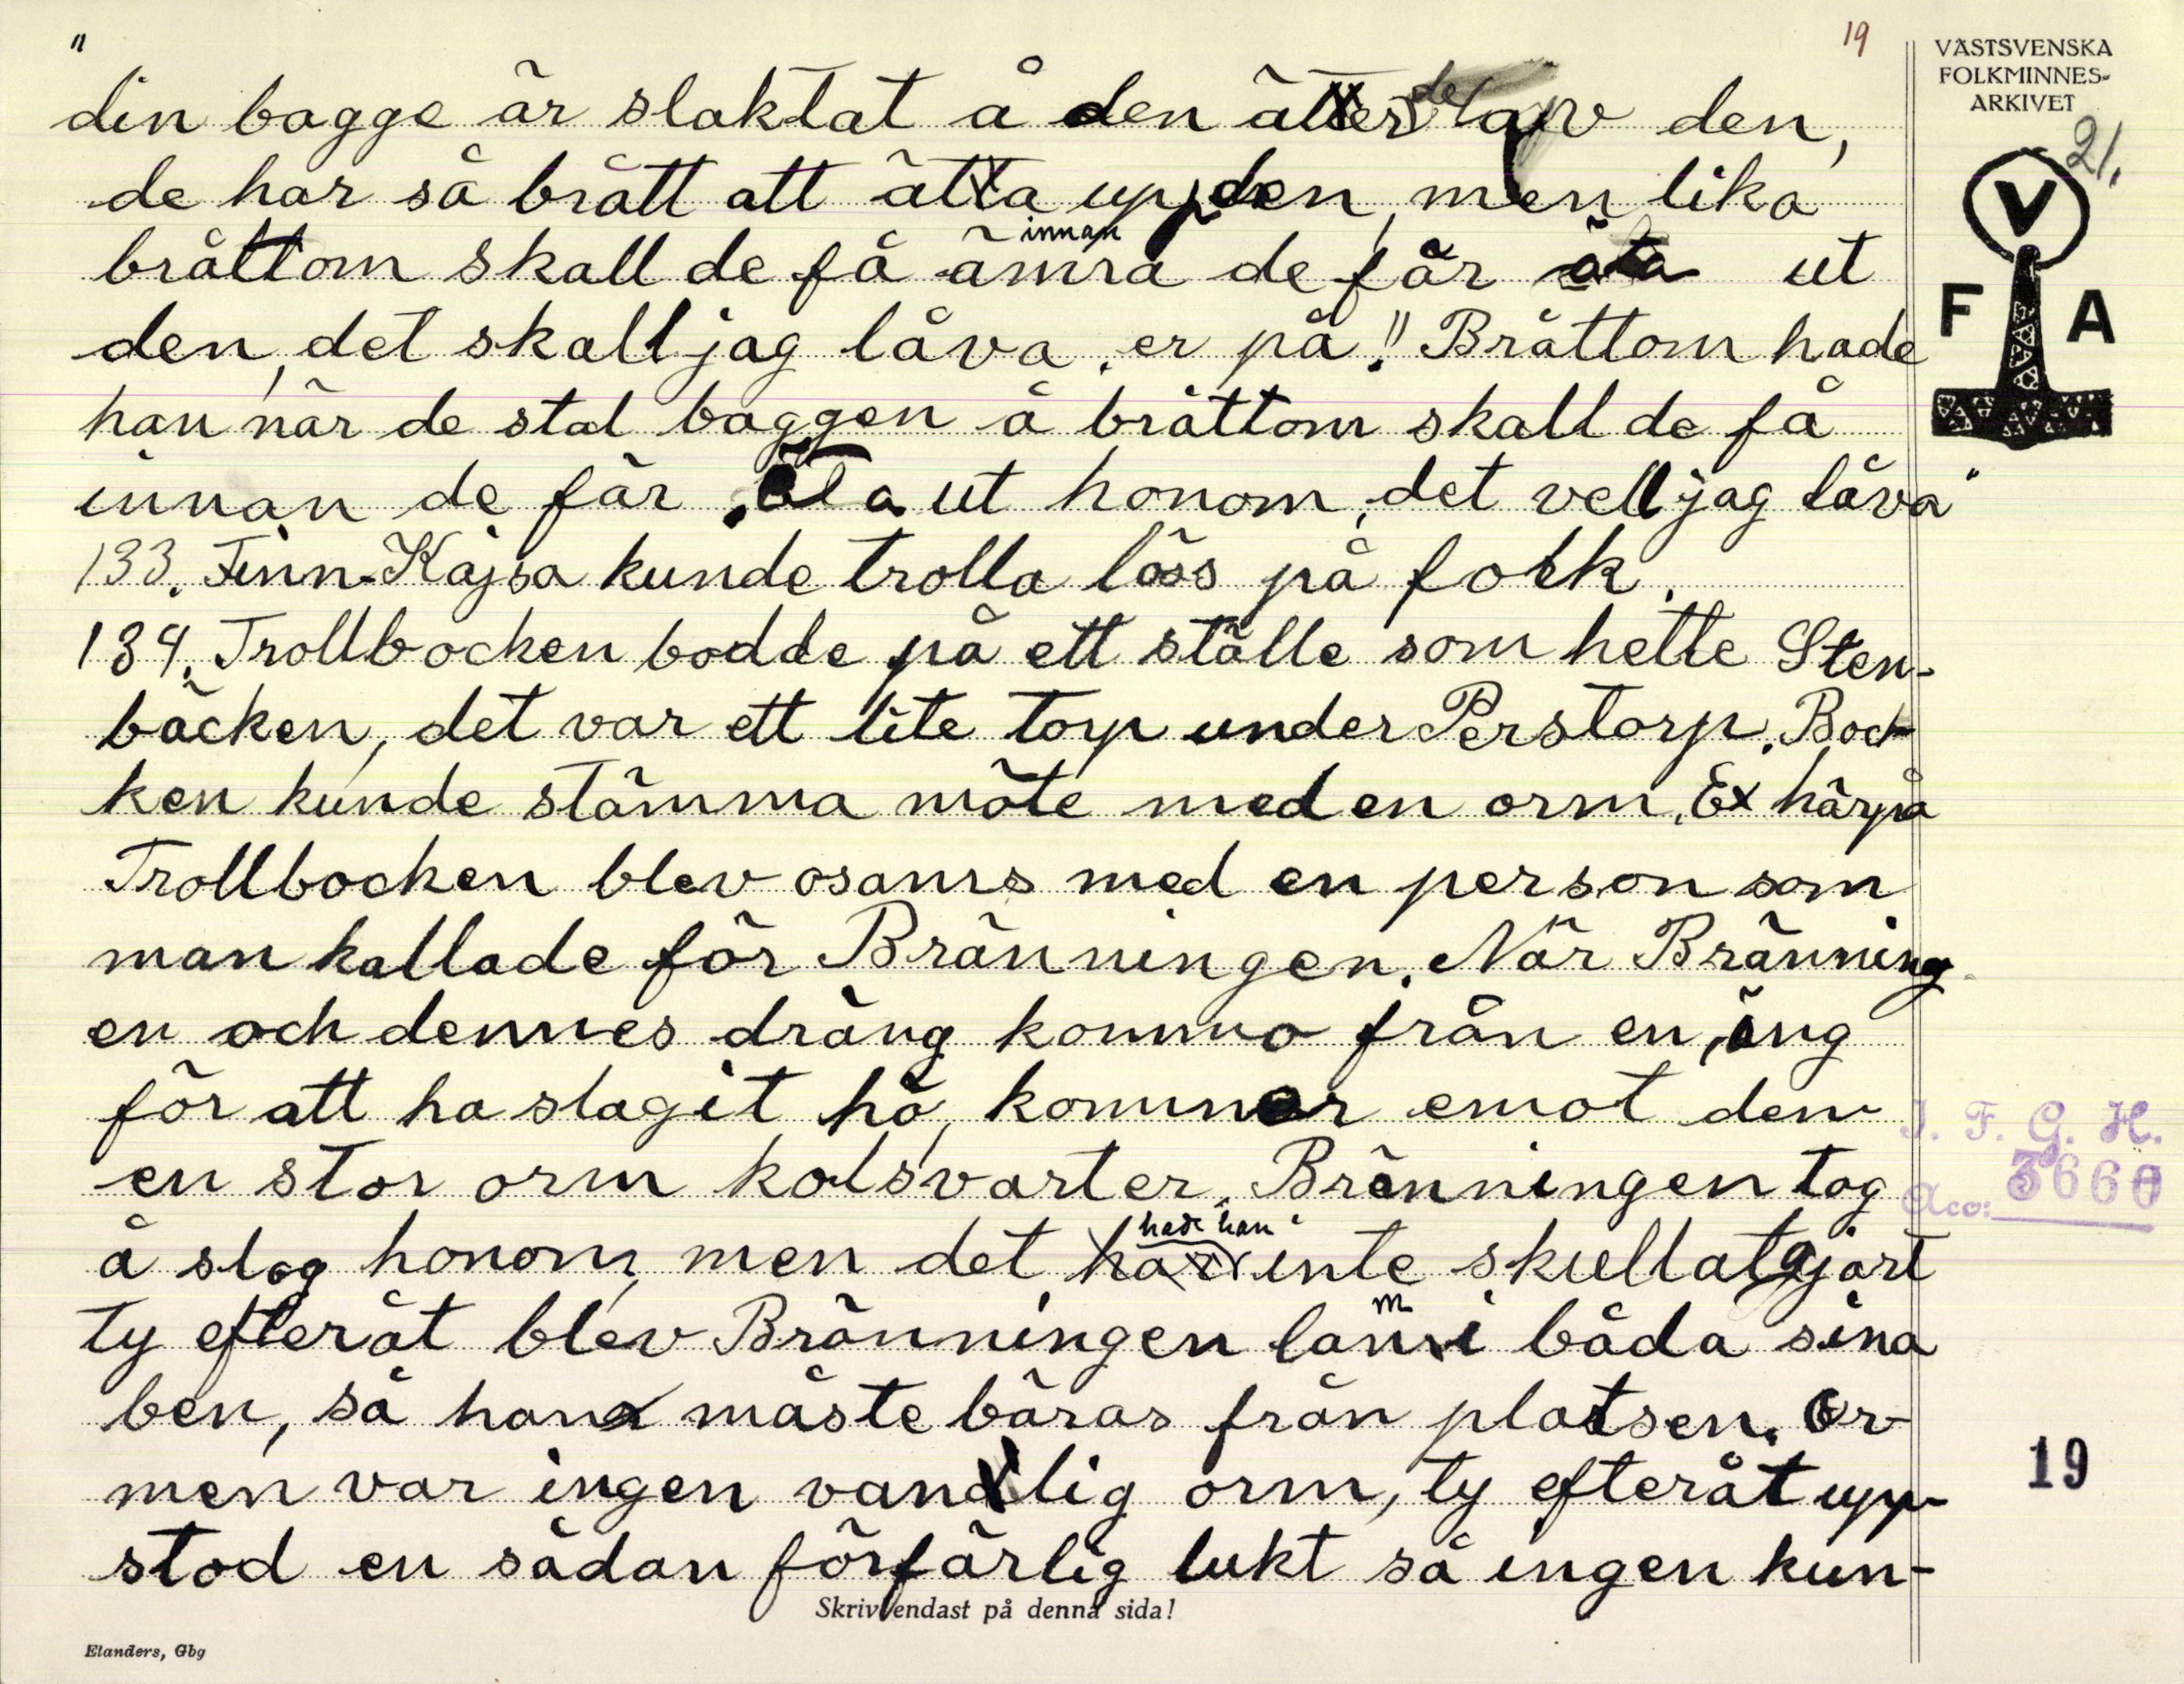 19
VÄSTSVENSKA
FOLKMINNES-
ARKIVET
21.
V
F A
"
din bagge är slaktat å den äter de den,
de har så brått att äta upp den, men lika
bråttom skall de få ämra innan de får äta ut
den, det skall jag låva er på!" Bråttom hade
han när de stal baggen å bråttom skall de få
innan de får äta ut honom, det vell jag låva"
133. Finn-Kajsa kunde trolla löss på folk.
134. Trollbocken bodde på ett ställe som hette Sten-
bäcken, det var ett lite torp under Perstorp. Boc-
ken kunde stämma möte med en orm. Ex härpå
Trollbocken blev osams med en person som
man kallade för Bränningen. När Bränning-
en och dennes dräng kommo från en äng
för att ha slagit hö, kommer emot dem
en stor orm kolsvarter. Bränningen tog
å slog honom, men det hade han inte skullat gjort
ty efteråt blev Bränningen lam i båda sina
ben, så han måste bäras från platsen. Or-
men var ingen vanlig orm, ty efteråt upp-
stod en sådan förfärlig lukt så ingen kun-
I. F. G. H.
Acc: 3660
19
Skriv endast på denna sida!
Elanders, Gbg